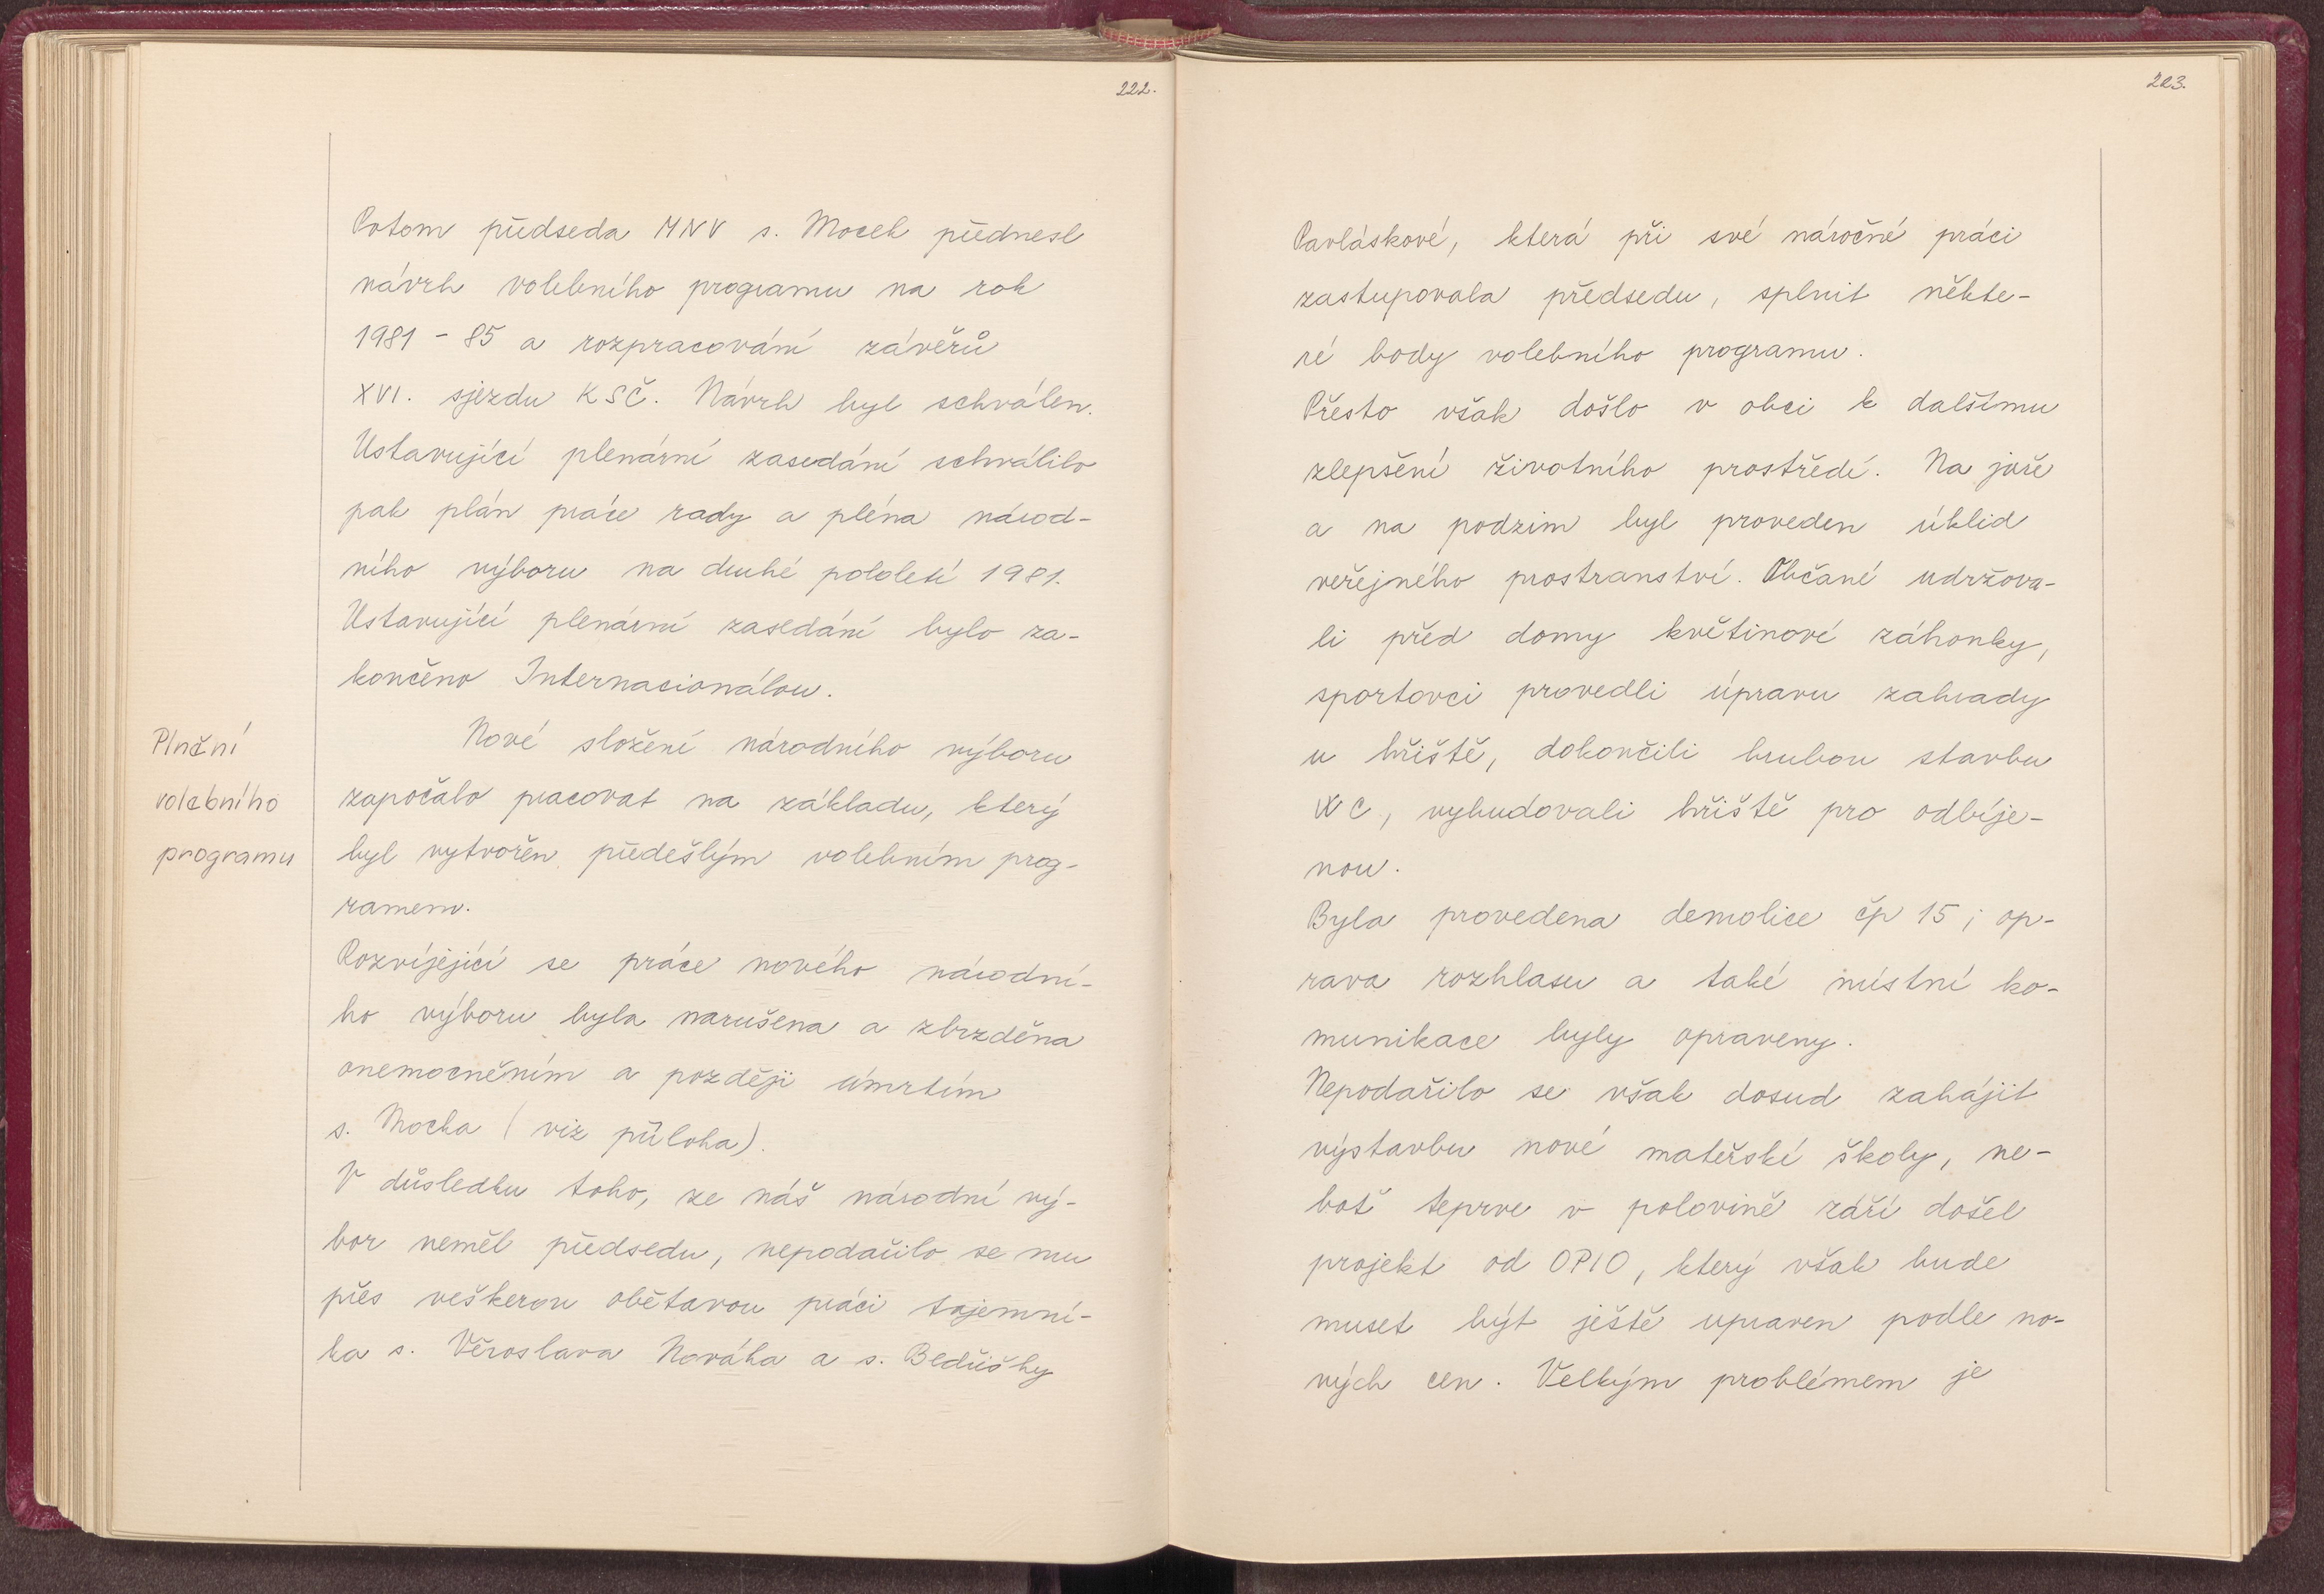 222.
Potom předseda MNV s. Mocek přednesl
návrh volebního programu na rok
1981 - 85 a rozpracování závěrů
XVI. sjezdu KSČ. Návrh byl schválen.
Ustavující plenární zasedání schválilo
pak plán práce rady a pléna národ-
ního výboru na druhé pololetí 1981.
Ustavující plenární zasedání bylo za-
končeno Internacionálou.
Plnění
volebního
programu
Nové složení národního výboru
započalo pracovat na základu, který
byl vytvořen předešlým volebním prog-
ramem.
Rozvíjející se práce nového národní-
ho výboru byla narušena a zbrzděna
onemocněním a později úmrtím
s. Mocka (viz příloha).
V důsledku toho, že náš národní vý-
bor neměl předsedu, nepodařilo se mu
přes veškerou obětavou práci tajemní-
ka s. Věroslava Nováka a s. Bedřišky
223.
Pavláskové, která při své náročné práci
zastupovala předsedu, splnit někte-
ré body volebního programu.
Přesto však došlo v obci k dalšímu
zlepšení životního prostředí. Na jaře
a na podzim byl proveden úklid
veřejného prostranství. Občané udržova-
li před domy květinové záhonky,
sportovci provedli úpravu zahrady
u hřiště, dokončili hrubou stavbu
WC, vybudovali hřiště pro odbíje-
nou.
Byla provedena demolice čp 15; op-
rava rozhlasu a také místní ko-
munikace byly opraveny.
Nepodařilo se však dosud zahájit
výstavbu nové mateřské školy, ne-
boť teprve v polovině září došel
projekt od OPIO, který však bude
muset být ještě upraven podle no-
vých cen. Velkým problémem je